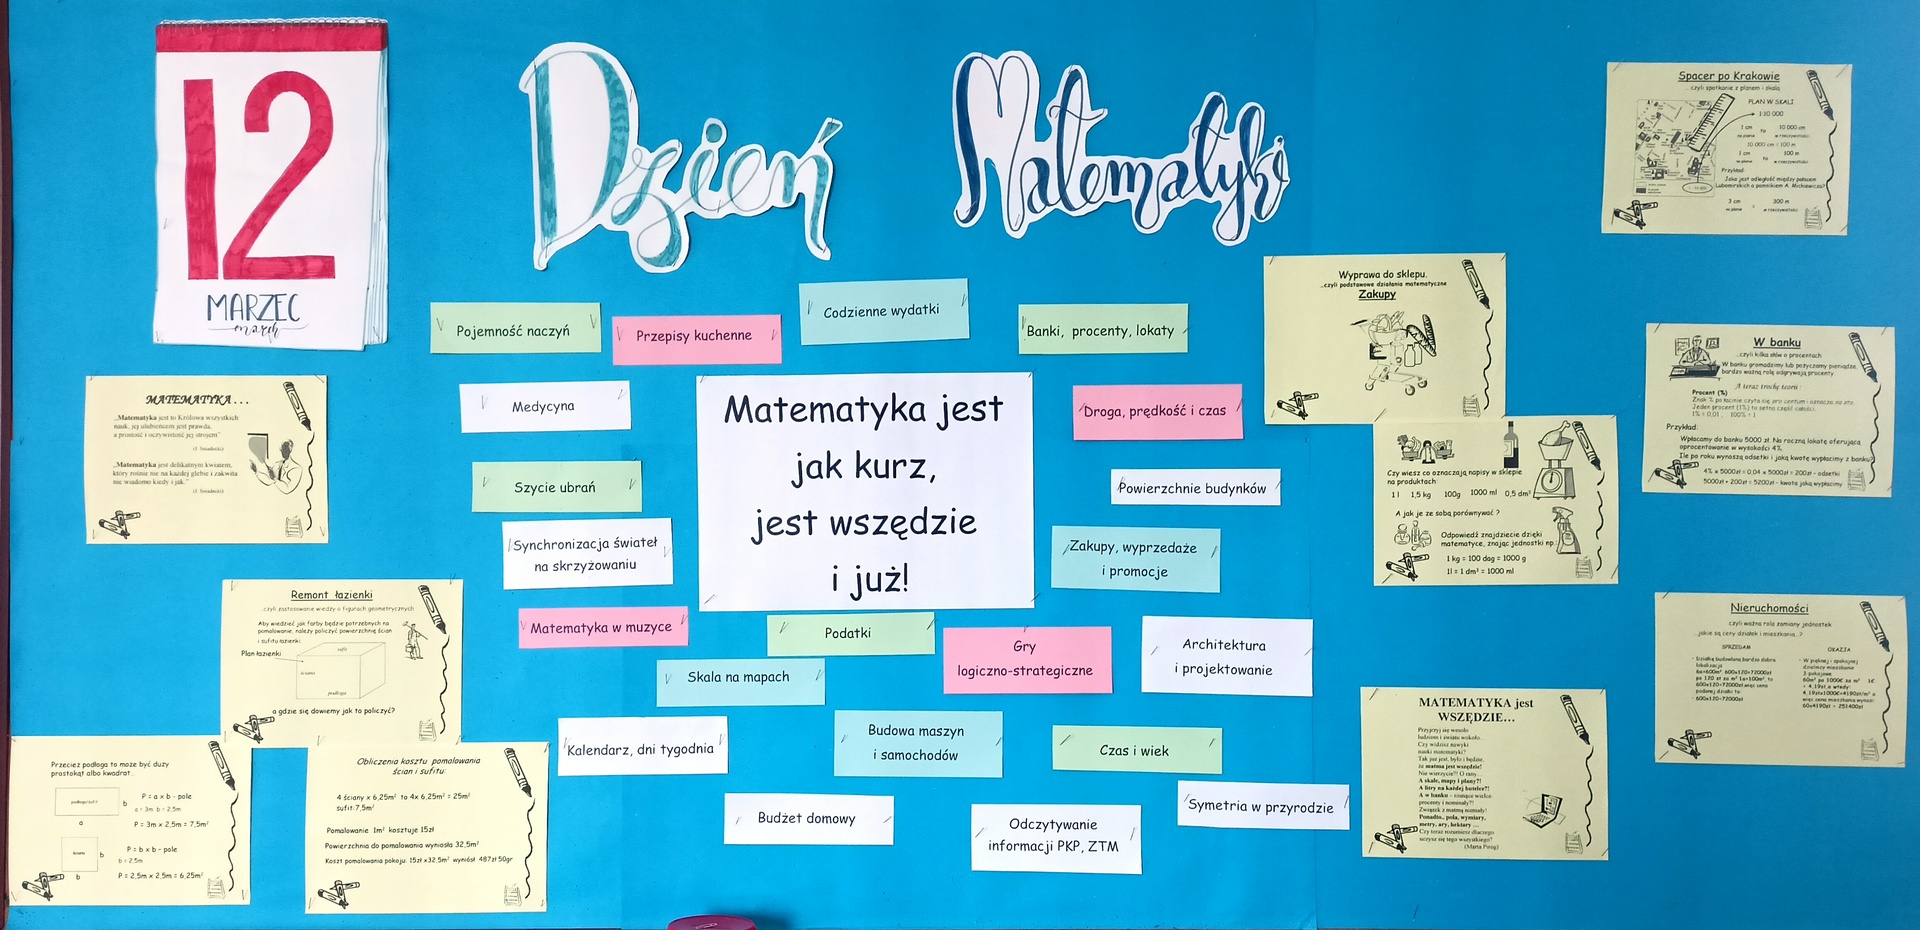 12
MARZEC
march
Dzień Matematyki
Pojemność naczyń
Przepisy kuchenne
Codzienne wydatki
Banki, procenty, lokaty
Medycyna
Droga, prędkość i czas
Szycie ubrań
Powierzchnie budynków
Synchronizacja świateł
na skrzyżowaniu
Zakupy, wyprzedaże
i promocje
Matematyka jest
jak kurz,
jest wszędzie
i już!
Matematyka w muzyce
Podatki
Gry
logiczno-strategiczne
Architektura
i projektowanie
Skala na mapach
Kalendarz, dni tygodnia
Budowa maszyn
i samochodów
Czas i wiek
Budżet domowy
Odczytywanie
informacji PKP, ZTM
Symetria w przyrodzie
MATEMATYKA...
„Matematyka jest to Królowa wszystkich
nauk, jej ulubieńcem jest prawda,
a prostość i oczywistość jej strojem"
„Matematyka jest delikatnym kwiatem,
który rośnie nie na każdej glebie i zakwita
nie wiadomo kiedy i jak."
Remont łazienki
...czyli zastosowanie wiedzy o figurach geometrycznych
Aby wiedzieć jak farby będzie potrzebnych na
pomalowanie, należy policzyć powierzchnię ścian
i sufitu łazienki:
Plan łazienki
sufit
ściana
podłoga
a gdzie się dowiemy jak to policzyć?
Przecież podłoga to może być duży
prostokąt albo kwadrat..
P = a x b - pole
a = 3m b = 2,5m
P = 3m x 2,5m = 7,5m²
b
a
P = b x b - pole
b = 2,5m
P = 2,5m x 2,5m = 6,25m²
ściana
b
b
Obliczenia kosztu pomalowania
ścian i sufitu:
4 ściany x 6,25m² to 4x 6,25m² = 25m²
sufit:7,5m²
Pomalowanie 1m² kosztuje 15zł
Powierzchnia do pomalowania wyniosła 32,5m²
Koszt pomalowania pokoju: 15zł x32,5m² wyniósł 487zł 50gr
Spacer po Krakowie
... czyli spotkanie z planem i skalą
PLAN W SKALI
1:10 000
1 cm to 10 000 cm
na planie w rzeczywistości
10 000 cm = 100 m
1 cm to 100 m
na planie w rzeczywistości
Przykład:
Jaka jest odległość między pałacem
Lubomirskich a pomnikiem A. Mickiewicza?
3 cm = 300 m
na planie w rzeczywistości
Wyprawa do sklepu.
..czyli podstawowe działania matematyczne
Zakupy
Czy wiesz co oznaczają napisy w sklepie
na produktach:
1 l 1,5 kg 100g 1000 ml 0,5 dm³
A jak je ze sobą porównywać ?
Odpowiedź znajdziecie dzięki
matematyce, znając jednostki np.:
1 kg = 100 dag = 1000 g
1l = 1 dm³ = 1000 ml
W banku
...czyli kilka słów o procentach
W banku gromadzimy lub pożyczamy pieniądze,
bardzo ważną rolę odgrywają procenty.
A teraz trochę teorii :
Procent (%)
Znak % po łacinie czyta się pro centum i oznacza na sto.
Jeden procent (1%) to setna część całości.
1% = 0,01 , 100% = 1
Przykład:
Wpłacamy do banku 5000 zł. Na roczną lokatę oferującą
oprocentowanie w wysokości 4%.
Ile po roku wynoszą odsetki i jaką kwotę wypłacimy z banku?
4% x 5000zł = 0,04 x 5000zł = 200zł - odsetki
5000zł + 200zł = 5200zł - kwota jaką wypłacimy
Nieruchomości
czyli ważna rola zamiany jednostek
...jakie są ceny działek i mieszkania...?
SPRZEDAM
OKAZJA
MATEMATYKA jest
WSZĘDZIE...
Przyjrzyj się wesoło
ludziom i światu wokoło...
Czy widzisz nawyki
nauki matematyki?
Tak już jest, było i będzie,
że matma jest wszędzie!
Nie wierzycie?! O rany...
A skale, mapy i plany?!
A litry na każdej butelce?!
A w banku – rosnące wielce
procenty i nominały?!
Związek z matmą niemały!
Ponadto.. pola, wymiary,
metry, ary, hektary ...
Czy teraz rozumiesz dlaczego
uczysz się tego wszystkiego?
(Marta Piróg)